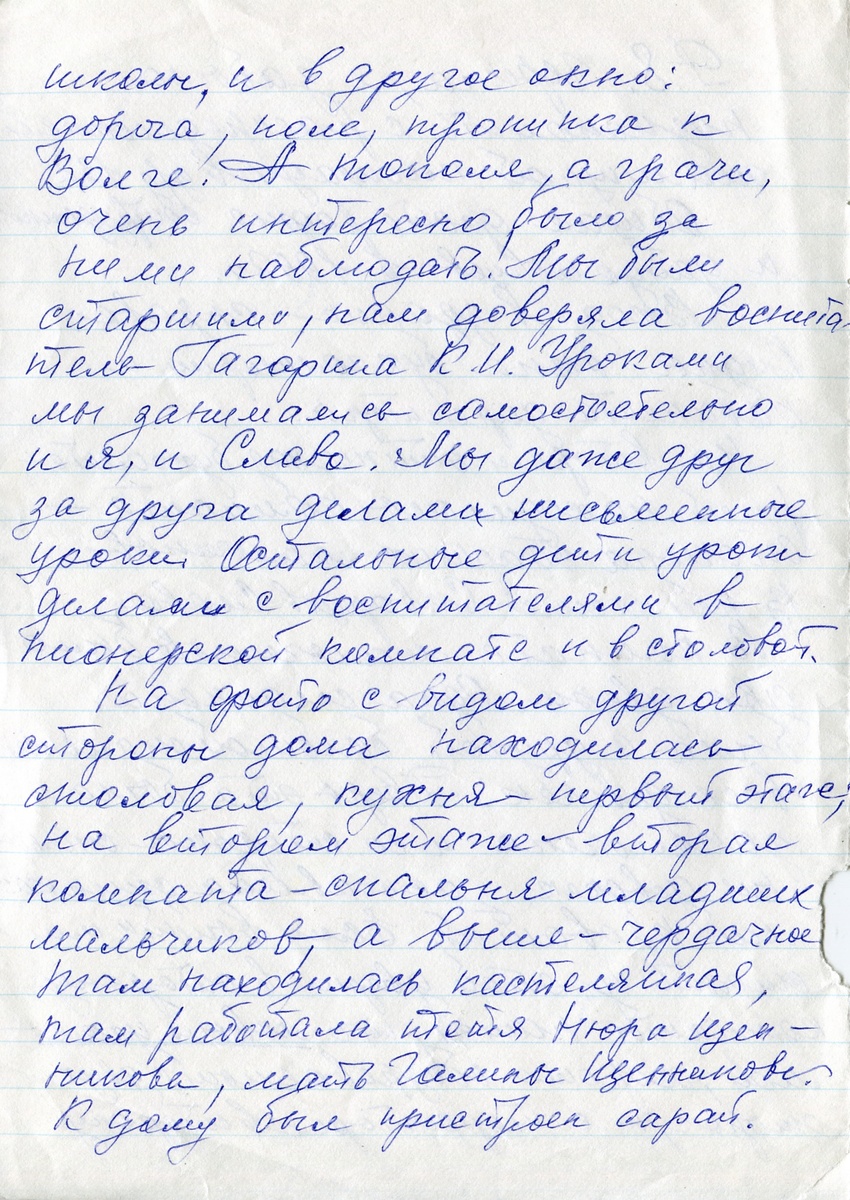 школы, и в другое окно:
дорога, поле, тропинка к
Волге. А тополя, а грачи,
очень интересно было за
ними наблюдать. Мы были
старшими, нам доверяла воспита
тель Гагарина К.И. Уроками
мы занимались самостоятельно
и я, и Слава. Мы даже друг
за друга делали письменные
уроки. Остальные дети уроки
делали с воспитателями в
пионерской комнате и в столовой.
На фото с видом другой
стороны дома находилась
столовая, кухня - первый этаж,
на втором этаже - вторая
комната - спальня младших
мальчиков, а выше - чердачное
там находилась кастелянная,
там работала тётя Нюра
никова, мать Галины
К дому был пристроен сарай.